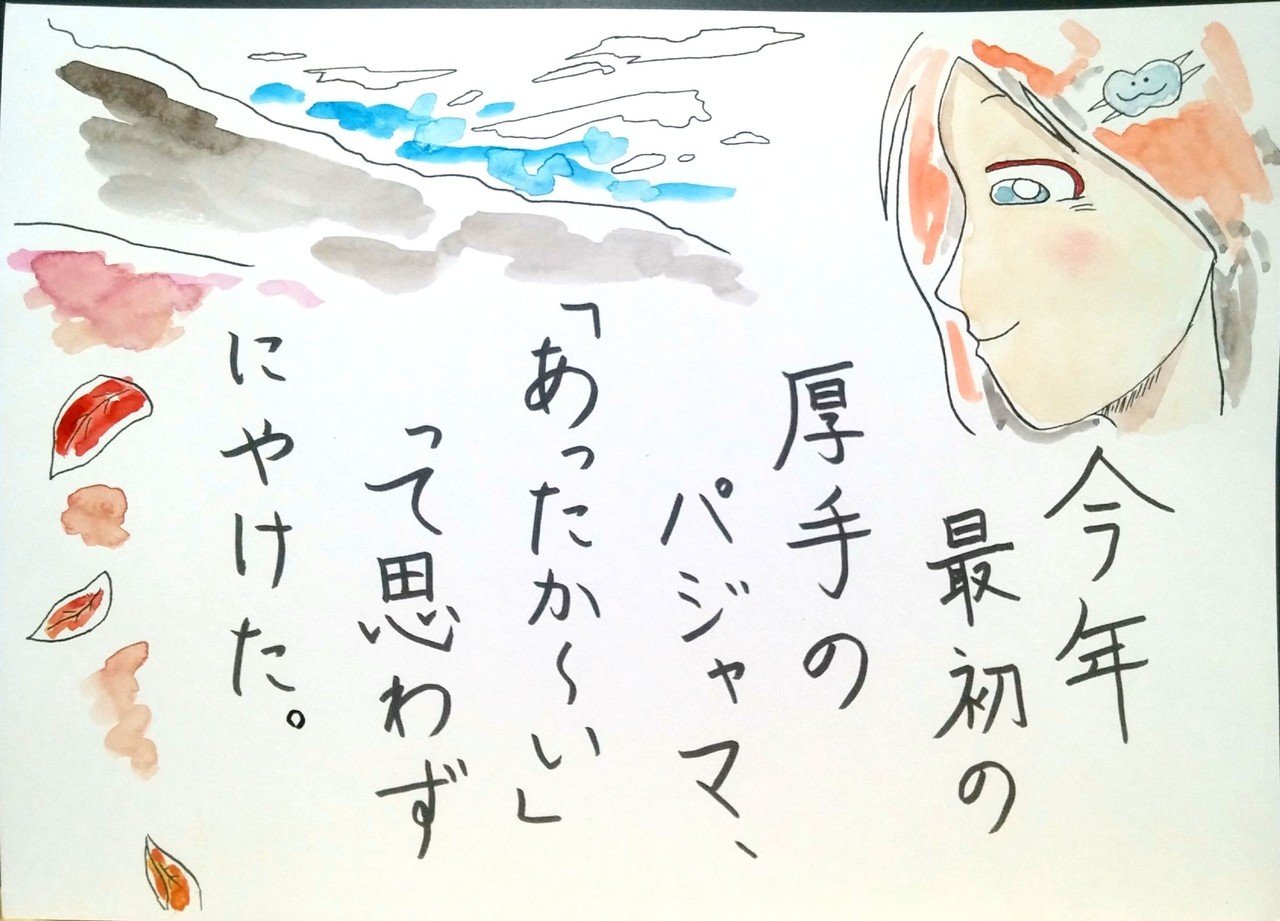 今年
最初の
厚手の
パジャマ、
「あったか～い」
って思わず
にやけた。